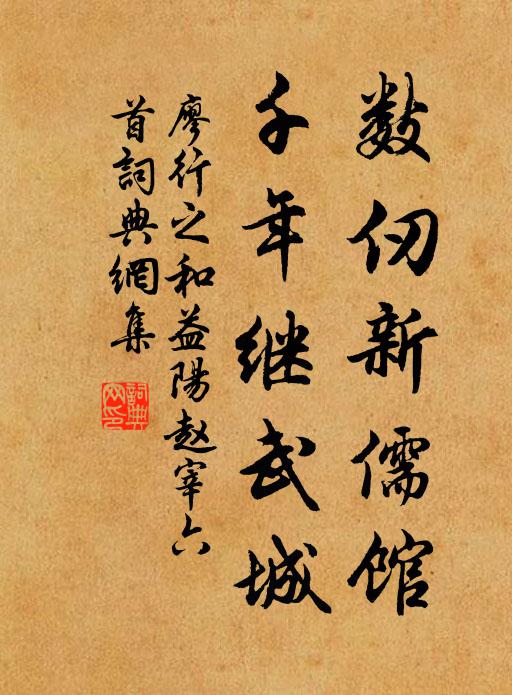 数仞新儒馆
千年继武城
廖行之和益陽赵宰六
首詞典網集
詞典
网印